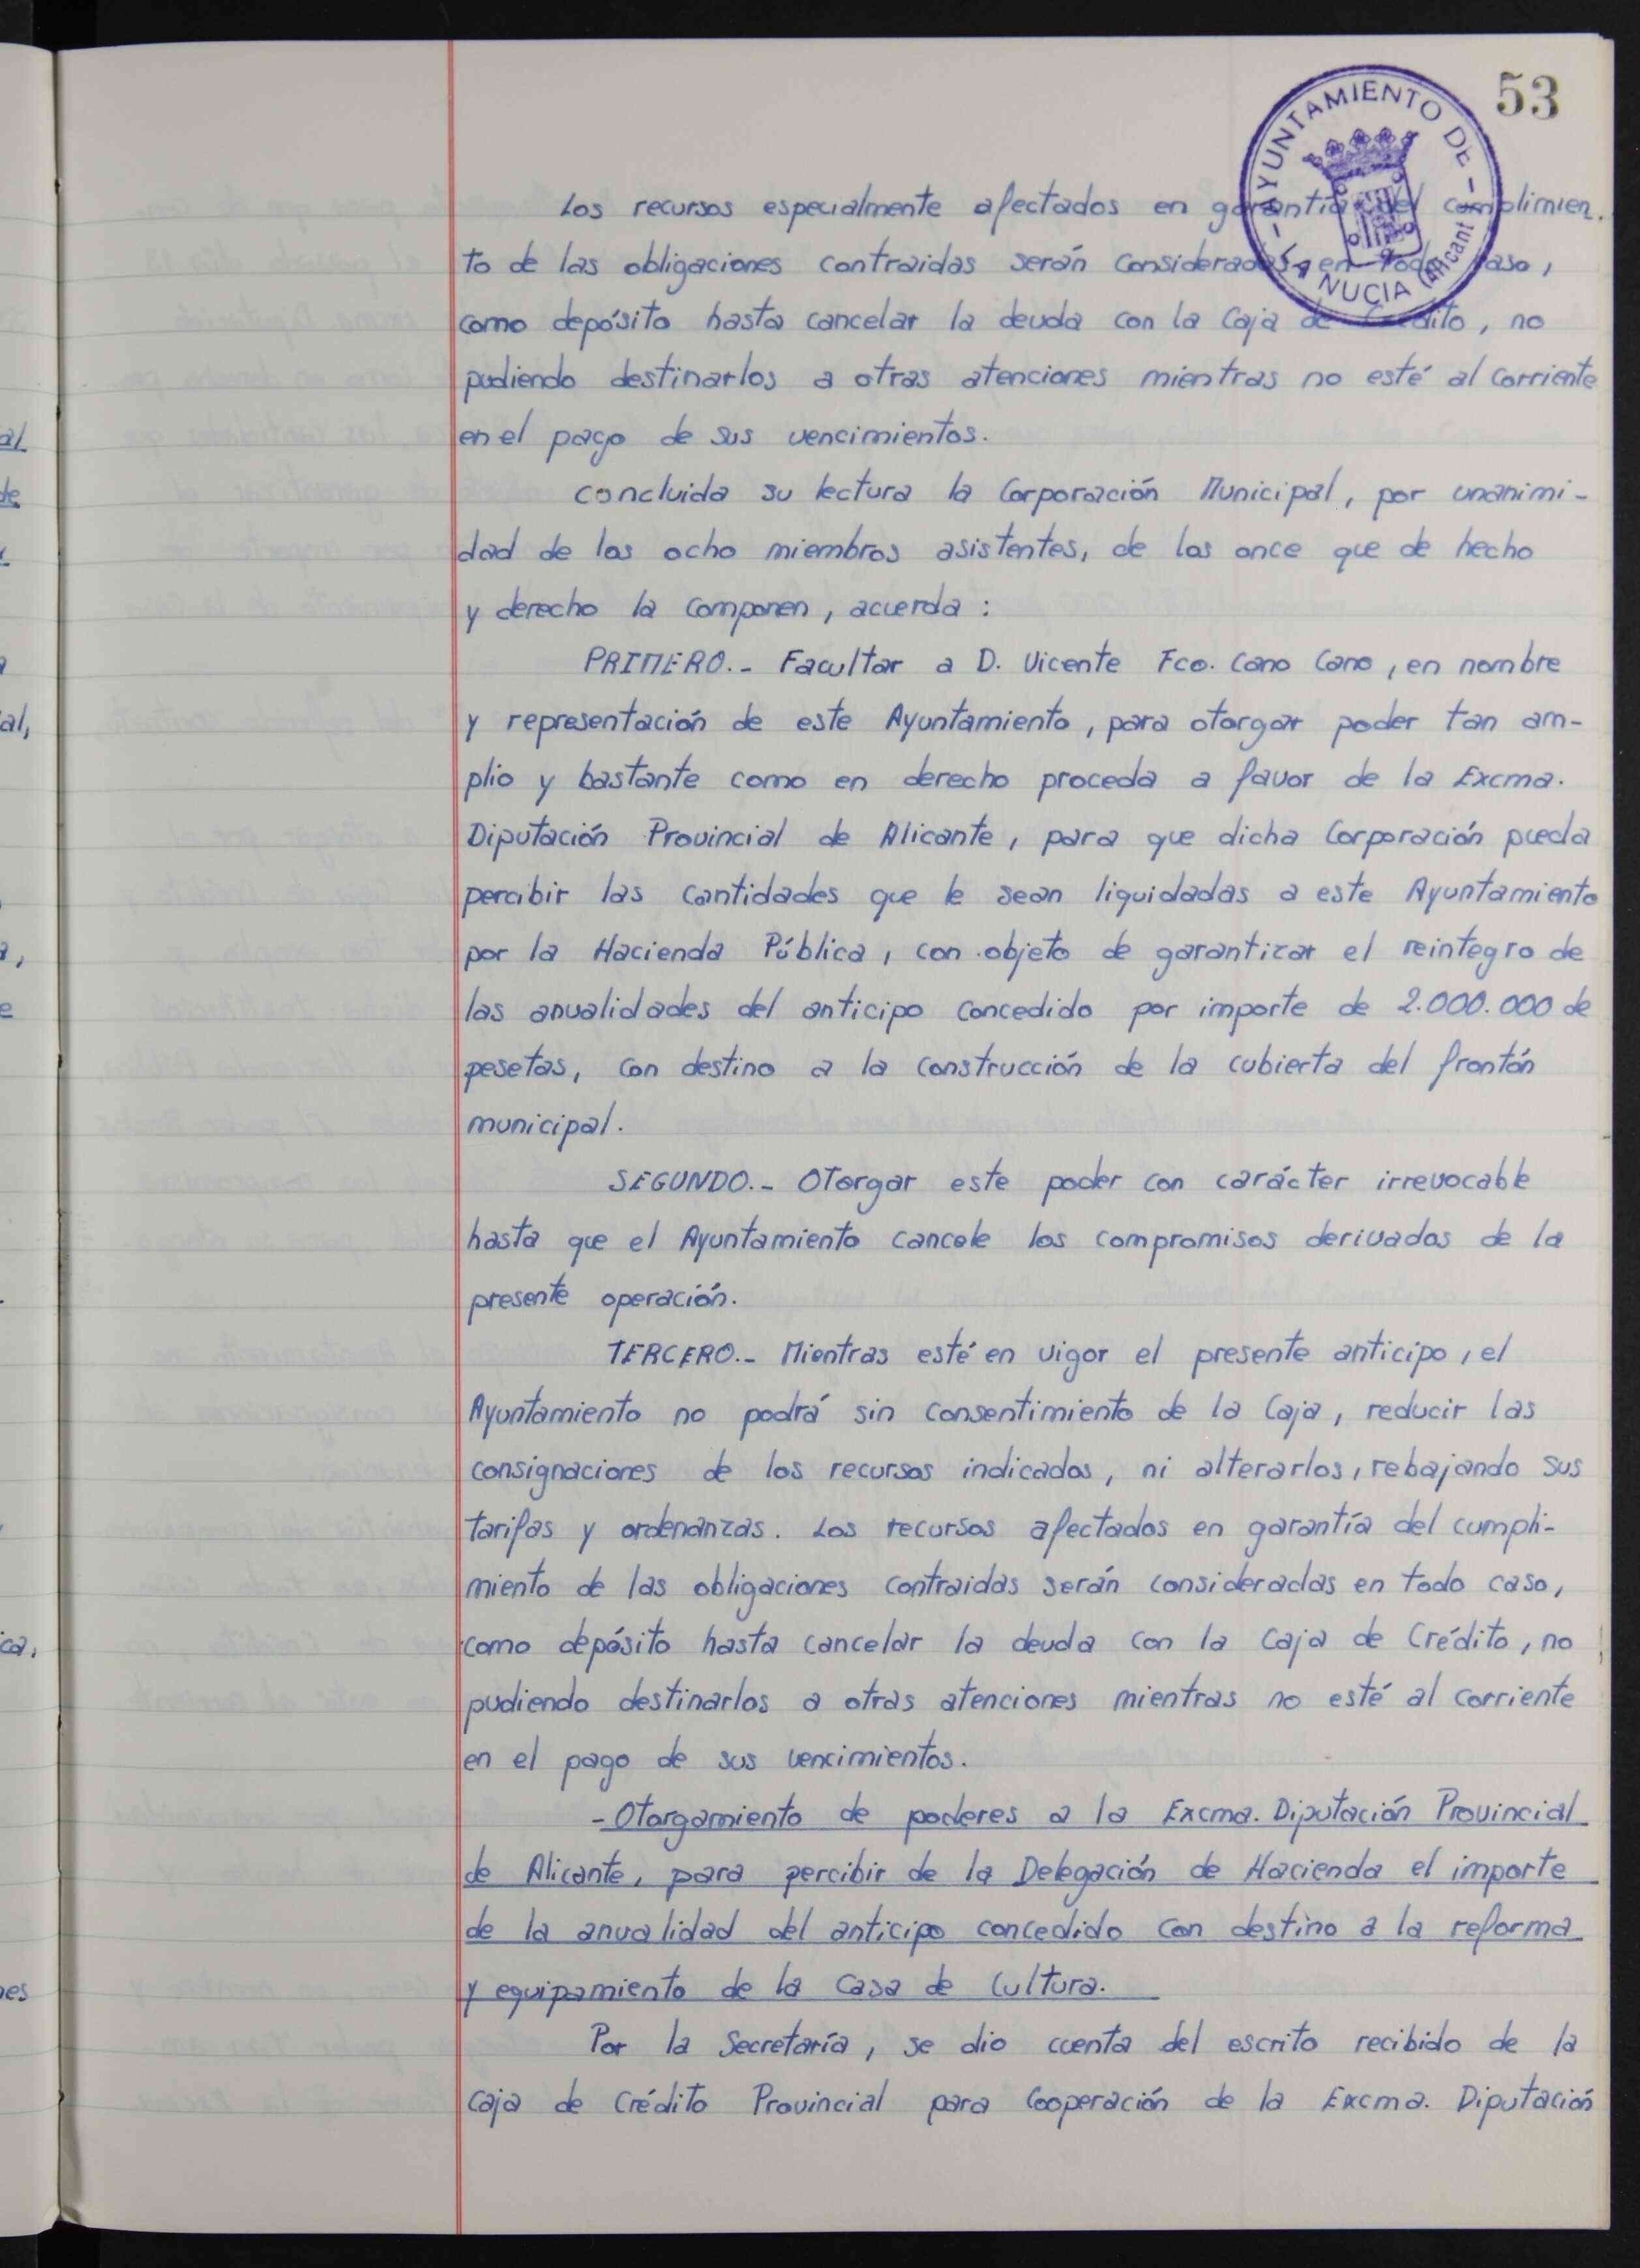 53
AYUNTAMIENTO DE
LA NUCIA (Alicante)
Los recursos especialmente afectados en garantía del cumplimien-
to de las obligaciones contraidas serán considerados en todo caso,
como depósito hasta cancelar la deuda con la Caja de Crédito, no
pudiendo destinarlos a otras atenciones mientras no esté al corriente
en el pago de sus vencimientos.
Concluida su lectura la Corporación Municipal, por unanimi-
dad de los ocho miembros asistentes, de los once que de hecho
y derecho la componen, acuerda:
PRIMERO.- Facultar a D. Vicente Fco. Cano Cano, en nombre
y representación de este Ayuntamiento, para otorgar poder tan am-
plio y bastante como en derecho proceda a favor de la Excma.
Diputación Provincial de Alicante, para que dicha Corporación pueda
percibir las cantidades que le sean liquidadas a este Ayuntamiento
por la Hacienda Pública, con objeto de garantizar el reintegro de
las anualidades del anticipo concedido por importe de 2.000.000 de
pesetas, con destino a la construcción de la cubierta del frontón
municipal.
SEGUNDO.- Otorgar este poder con carácter irrevocable
hasta que el Ayuntamiento cancele los compromisos derivados de la
presente operación.
TERCERO.- Mientras esté en vigor el presente anticipo, el
Ayuntamiento no podrá sin consentimiento de la Caja, reducir las
consignaciones de los recursos indicados, ni alterarlos, rebajando sus
tarifas y ordenanzas. Los recursos afectados en garantía del cumpli-
miento de las obligaciones contraidas serán consideradas en todo caso,
como depósito hasta cancelar la deuda con la Caja de Crédito, no
pudiendo destinarlos a otras atenciones mientras no esté al corriente
en el pago de sus vencimientos.
- Otorgamiento de poderes a la Excma. Diputación Provincial
de Alicante, para percibir de la Delegación de Hacienda el importe
de la anualidad del anticipo concedido con destino a la reforma
y equipamiento de la Casa de Cultura.
Por la Secretaría, se dio cuenta del escrito recibido de la
Caja de Crédito Provincial para Cooperación de la Excma. Diputación